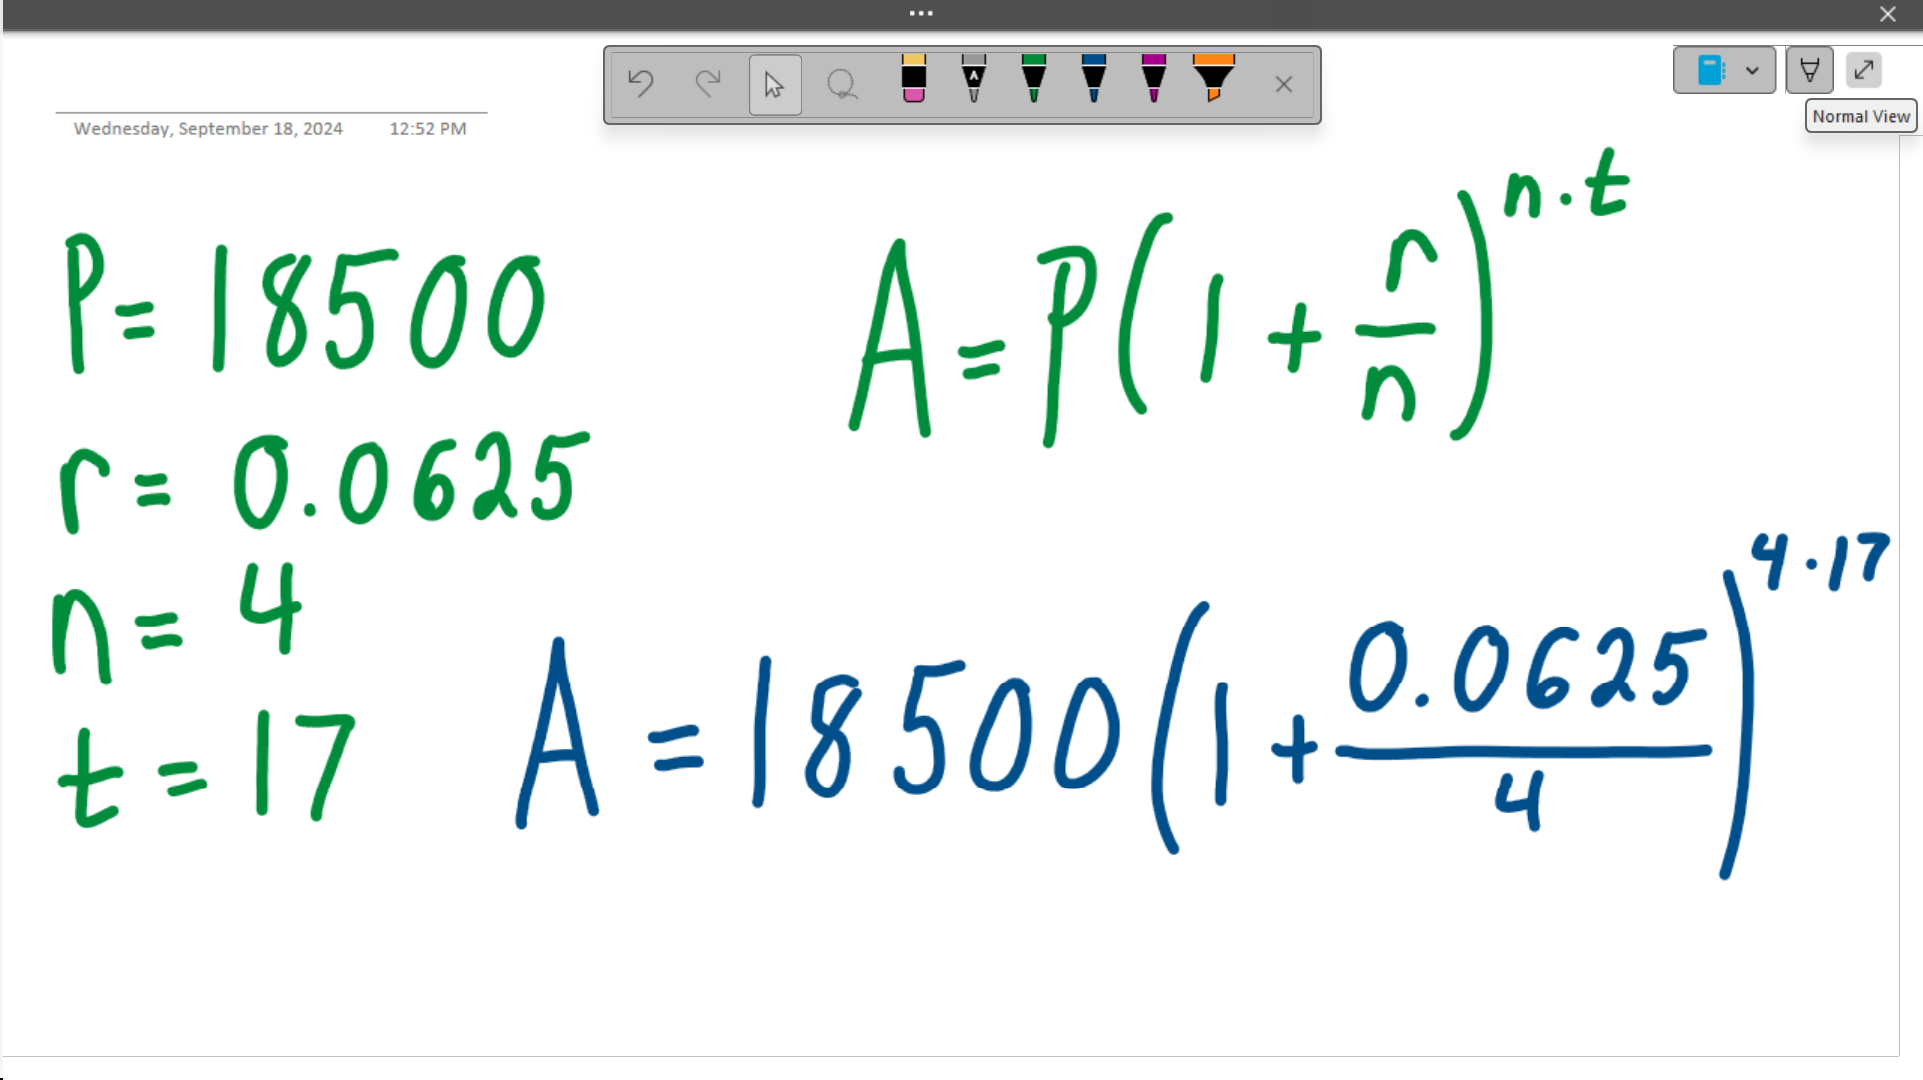 Normal View
Wednesday, September 18, 2024 12:52 PM
P = 18500
r = 0.0625
n = 4
t = 17
A = P(1 + r/n)^n·t
A = 18500(1 + 0.0625/4)^4·17